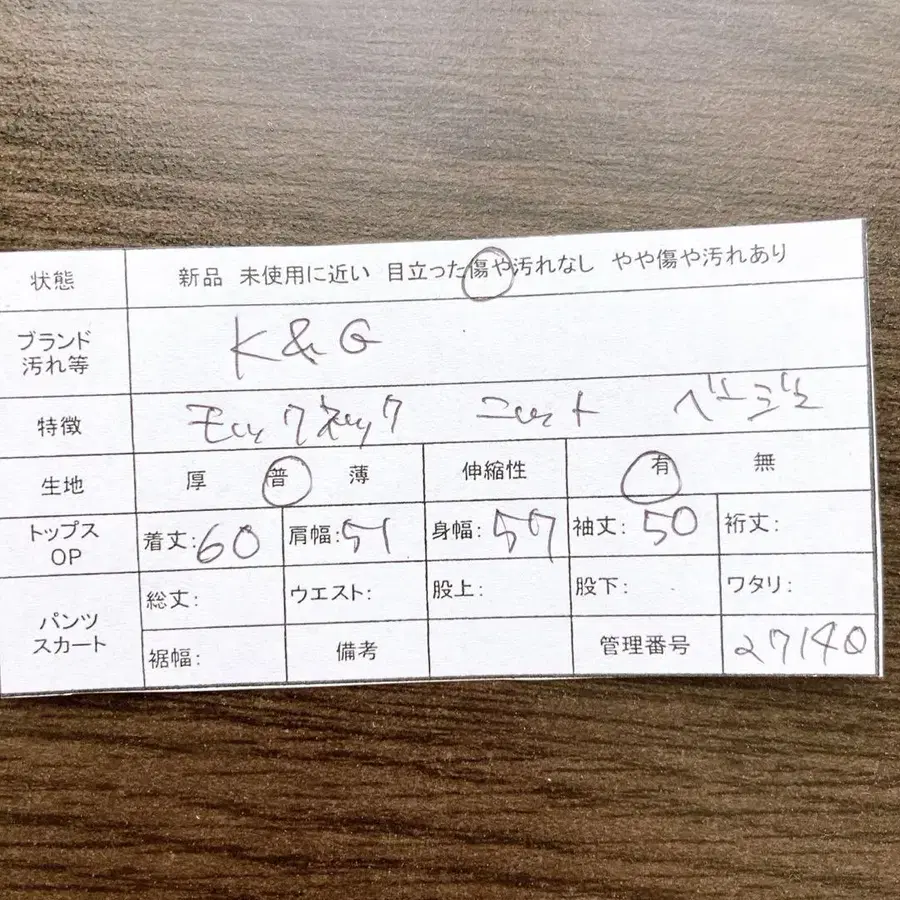 状態 新品 未使用に近い 目立った傷や汚れなし やや傷や汚れあり
ブランド 汚れ等 K&G
特徴 モックネック ニット ベージュ
生地 厚 普 薄 伸縮性 有 無
トップス OP 着丈:60 肩幅:51 身幅:57 袖丈:50 裄丈:
パンツ スカート 総丈: ウエスト: 股上: 股下: ワタリ:
裾幅: 備考 管理番号 27140